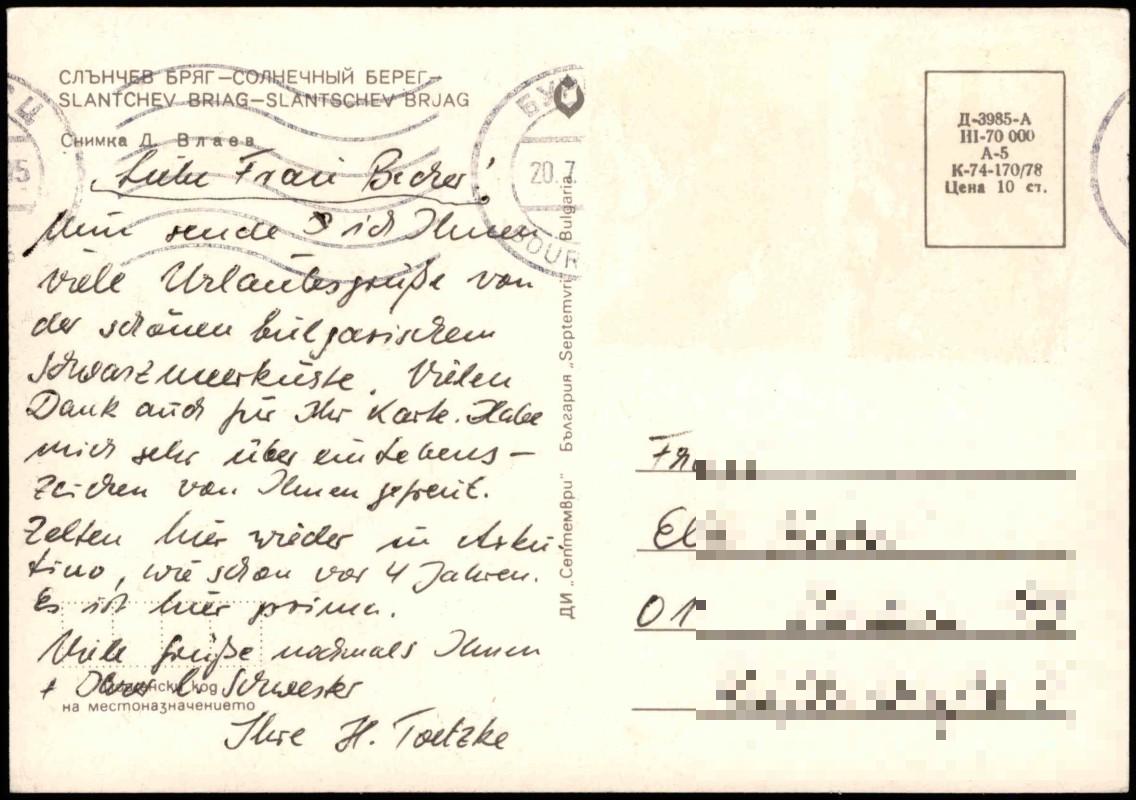 СЛЪНЧЕВ БРЯГ—СОЛНЕЧНЫЙ БЕРЕГ—
SLANTCHEV BRIAG—SLANTSCHEV BRJAG
Снимка Д. Влаев
Liebe Frau Becker!
Nun sende ich Ihnen
viele Urlaubsgrüße von
der schönen bulgarischen
Schwarzmeerküste. Vielen
Dank auch für Ihr Karte. Habe
mich sehr über ein Lebens-
zeichen von Ihnen gefreut.
Zelten hier wieder in Arku-
tino, wie schon vor 4 Jahren.
Es ist hier prima.
Viele Grüße nochmals Ihnen
+ Ihrer Schwester
Ihre H. Toetzke
код
на местоназначението
ДИ „Септември" България „Septemvri" Bulgaria
20.7.
Д-3985-А
III-70 000
А-5
К-74-170/78
Цена 10 ст.
Fr
El
O1